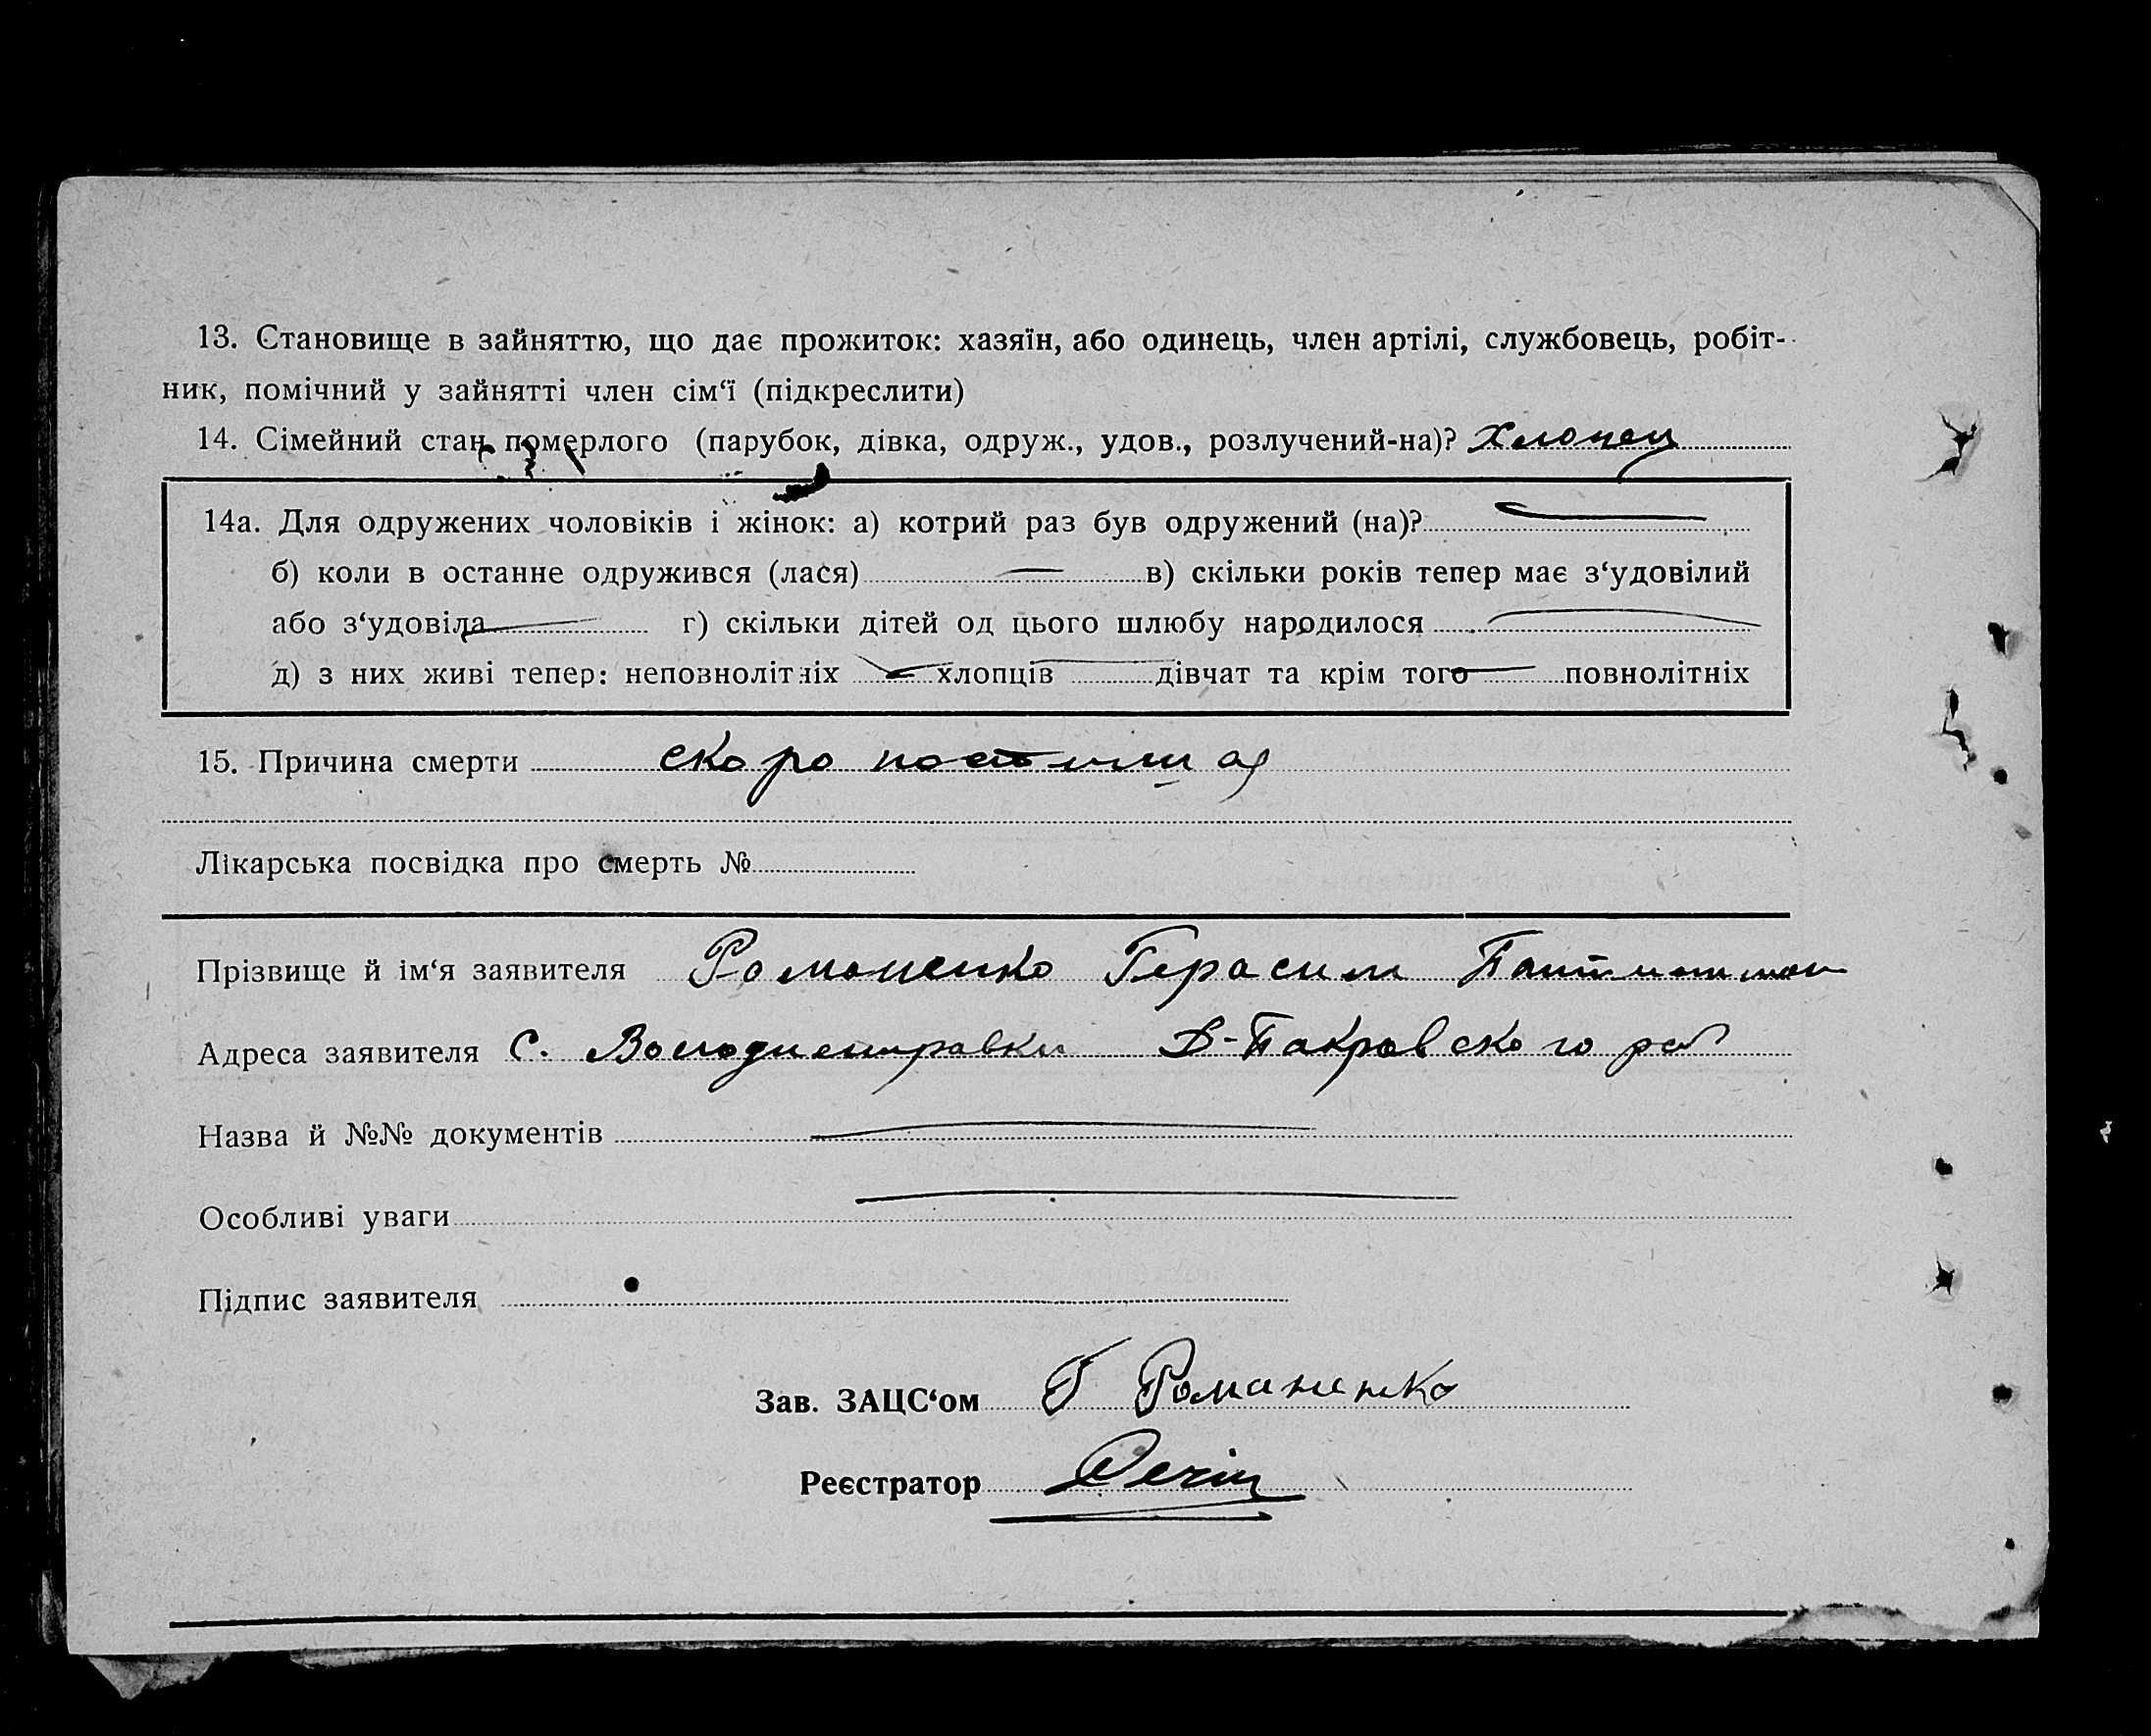 13. Становище в зайняттю, що дає прожиток: хазяїн, або одинець, член артілі, службовець, робіт-
ник, помічний у зайнятті член сім‘ї (підкреслити)
14. Сімейний стан померлого (парубок, дівка, одруж., удов., розлучений-на)? Хлопец
14а. Для одружених чоловіків і жінок: а) котрий раз був одружений (на)?
б) коли в останнє одружився (лася) — в) скільки років тепер має з‘удовілий
або з‘удовіла — г) скільки дітей од цього шлюбу народилося —
д) з них живі тепер: неповнолітніх — хлопців — дівчат та крім того — повнолітніх
15. Причина смерти скоро
Лікарська посвідка про смерть №
Прізвище й ім‘я заявителя Романенко Герасим
Адреса заявителя с. Володимировки В-Покровского
Назва й №№ документів —
Особливі уваги —
Підпис заявителя
Зав. ЗАЦС‘ом Г Романенко
Реєстратор